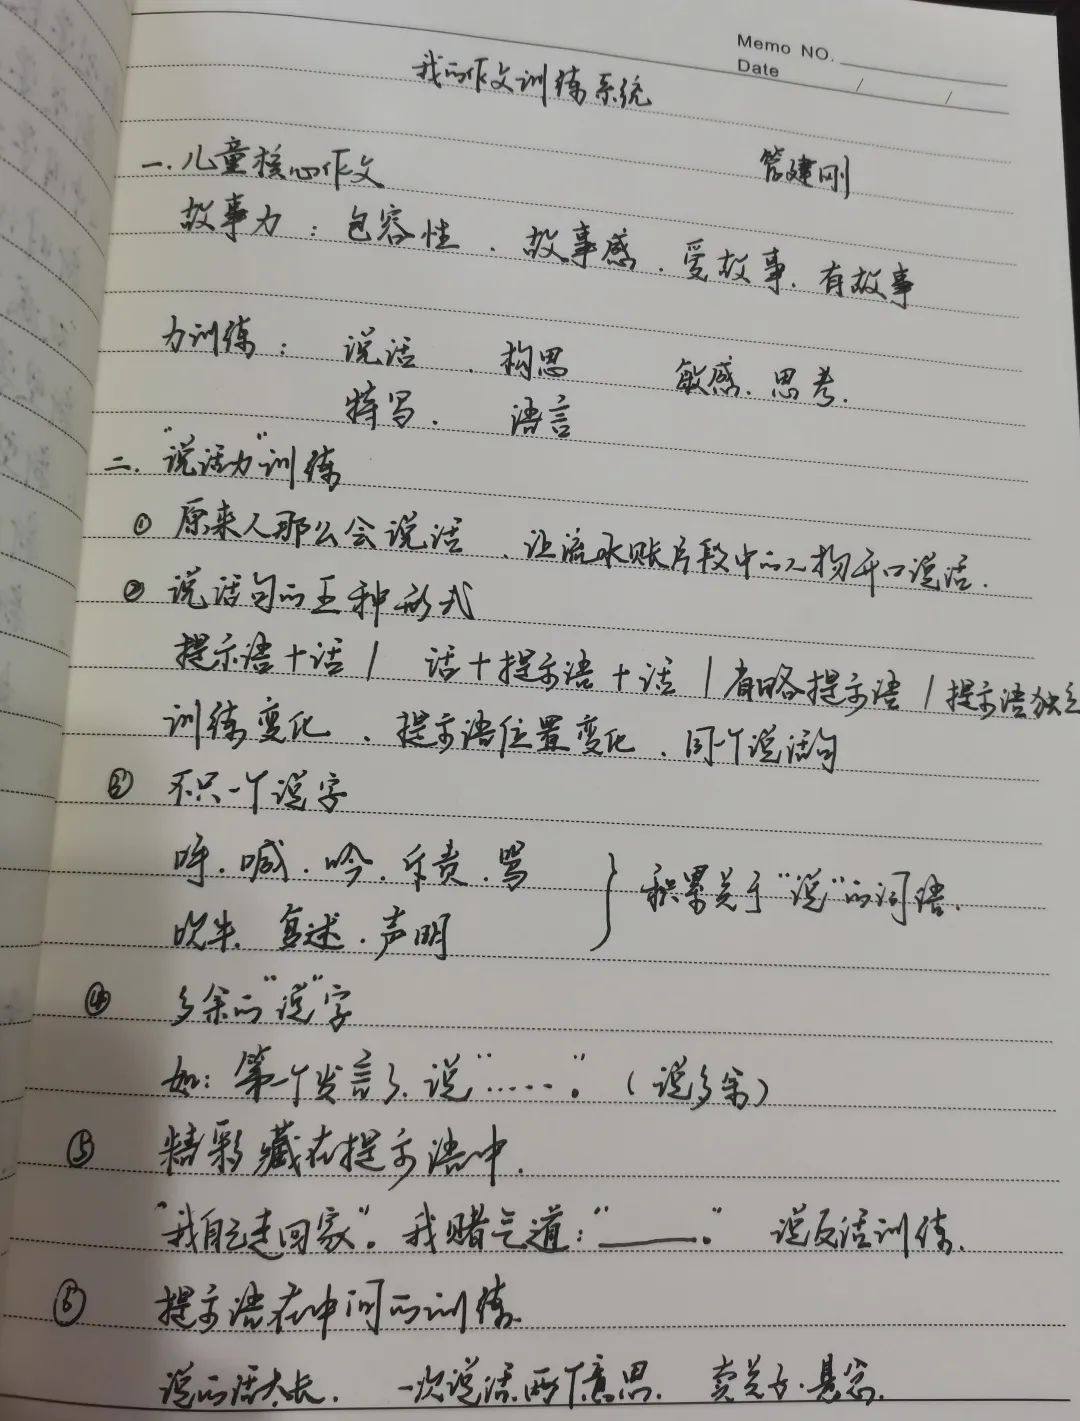 Memo NO.
Date / /
我的作文训练系统
管建刚
一.儿童核心作文
故事力：包容性、故事感、爱故事、有故事
力训练： 说话 、构思 敏感、思考.
特写、 语言
二."说话力"训练
① 原来人那么会说话 、让流水账片段中的人物开口说话.
② 说话句的五种形式
提示语+话 / 话+提示语+话 / 省略提示语 / 提示语独立
训练变化 、提示语位置变化、同一个说话句
③ 不只一个说字
喊、吟、斥责、骂
吹牛、复述、声明 } 积累关于"说"的词语.
④ 多余的"说"字
如：第一个发言了、说"……"。（说多余）
⑤ 精彩藏在提示语中.
"我自己走回家"。我赌气道："———"。 说反话训练.
⑥ 提示语在中间的训练.
说的话太长. 一次说话两个意思. 卖关子、悬念.